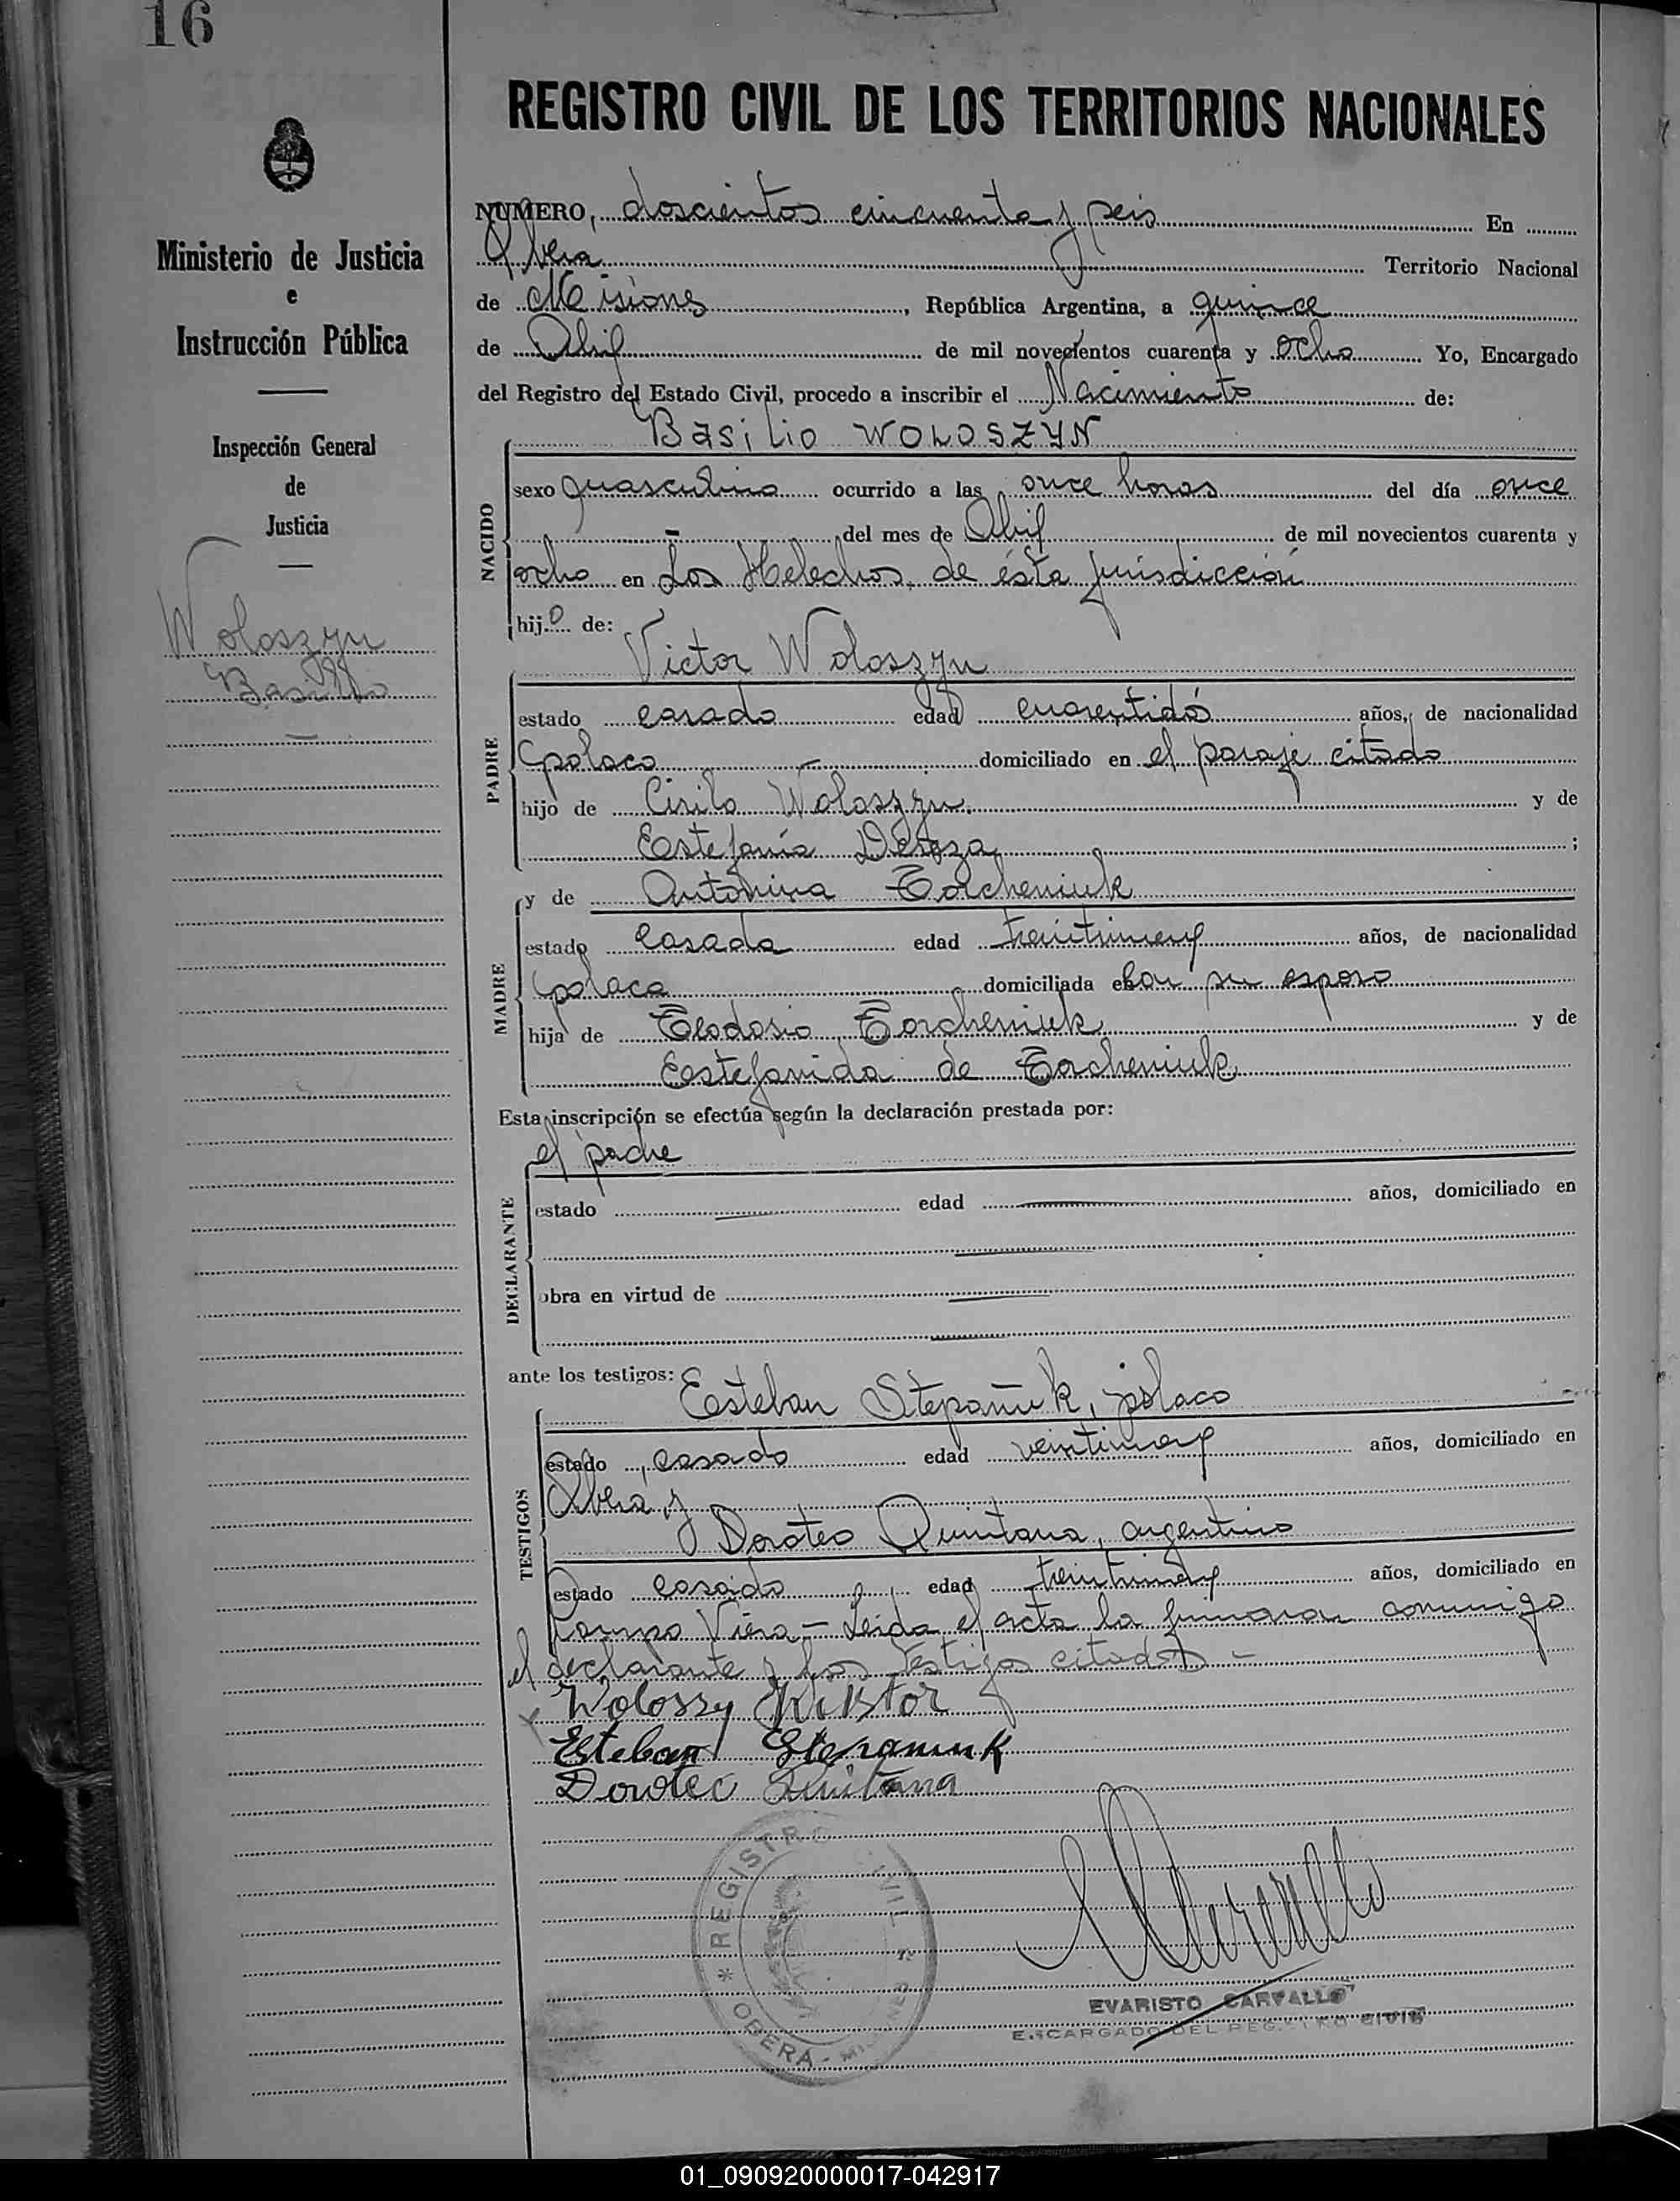 16
REGISTRO CIVIL DE LOS TERRITORIOS NACIONALES
Ministerio de Justicia
e
Instrucción Pública
Inspección General
de
Justicia
Woloszyn
Basilio
NUMERO, doscientos cincuenta y seis En
Oberá Territorio Nacional
de Misiones, República Argentina, a quince
de Abril de mil novecientos cuarenta y ocho Yo, Encargado
del Registro del Estado Civil, procedo a inscribir el Nacimiento de:
Basilio WOLOSZYN
NACIDO
sexo masculino ocurrido a las once horas del día once
del mes de Abril de mil novecientos cuarenta y
ocho en Los Helechos, de ésta jurisdicción
hijo de:
Victor Woloszyn
PADRE
estado casado edad cuarentidós años, de nacionalidad
polaco domiciliado en el paraje citado
hijo de Cirilo Woloszyn y de
Estefanía ;
y de Antonina Torcheniuk
MADRE
estado casada edad treintinuev años, de nacionalidad
polaca domiciliada con su esposo
hija de Teodosio Torcheniuk y de
Estefanida de Torcheniuk
Esta inscripción se efectúa según la declaración prestada por:
el padre
DECLARANTE
estado edad años, domiciliado en
obra en virtud de
ante los testigos:
Esteban Stepañuk, polaco
TESTIGOS
estado casado edad veintinuev años, domiciliado en
Oberá y
Doroteo Quintana, argentino
estado casado edad treintinuev años, domiciliado en
Campo Viera - Leida el acta la firmaron conmigo
el declarante y los testigos citados -
x Wolossy Wiktor
Esteban Stepaniuk
Doroteo Quintana
* REGISTRO CIVIL *
OBERA - MISIONES
EVARISTO CARVALLO
ENCARGADO DEL REGISTRO CIVIL
01_090920000017-042917